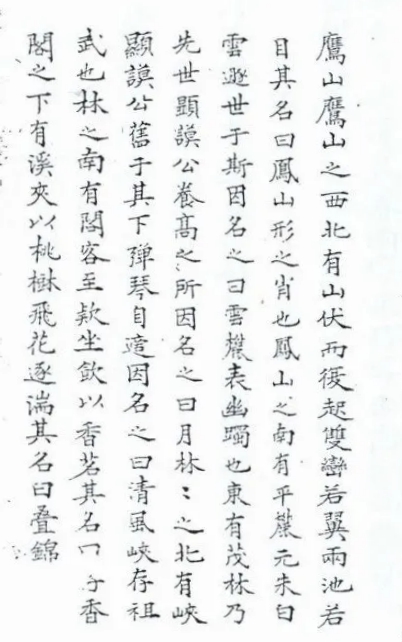 鷹山鷹山之西北有山伏而復起雙巒若翼兩池若
目其名曰鳳山形之肖也鳳山之南有平麓元末白
雲遯世于斯因名之曰雲麓表幽躅也東有茂林乃
先世顯謨公養高之所因名之曰月林〻之北有峽
顯謨公舊于其下彈琴自適因名之曰清風峽存祖
武也林之南有閣客至欵坐飲以香茗其名曰 香
閣之下有溪夾以桃樹飛花逐湍其名曰疊錦